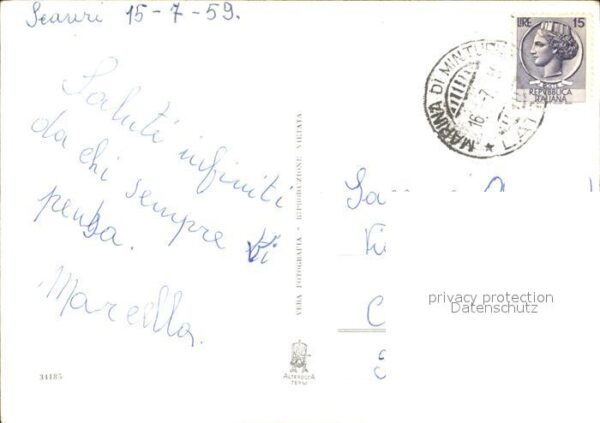 Scauri 15-7-59.
LIRE 15
REPVBBLICA
ITALIANA
MARINA DI MINTURNO
16 7
LAT
Saluti infiniti
da chi sempre Vi
pensa.
Marcella.
VERA FOTOGRAFIA - RIPRODUZIONE VIETATA
privacy protection
Datenschutz
34185
ALTEROCCA
TERNI